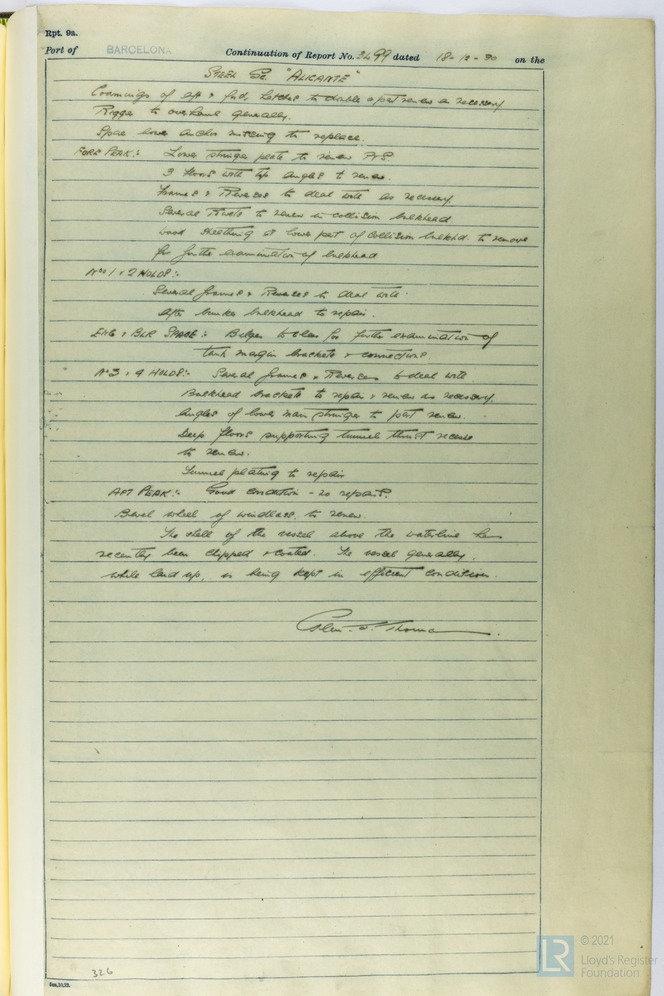 Rpt. 9a.
Port of BARCELONA Continuation of Report No. 3499 dated 18-12-30 on the
STEEL Sc. "ALICANTE"
Coamings of aft & fwd, hatches to double & part renew as necessary
Rigging to overhaul generally.
Spare bower anchor missing to replace.
FORE PEAK:- Lower stringer plate to renew P/S.
3 floors with top angles to renew.
Frames & Reverses to deal with as necessary.
Several Rivets to renew in collision bulkhead.
Wood sheathing at lower part of collision bulkhd. to remove
for further examination of bulkhead
Nos 1 & 2 HOLDS:-
Several frames & Reverses to deal with.
Aft bunker bulkhead to repair.
ENG & BLR SPACE:- Bilges to clean for further examination of
tank margin brackets & connections.
No 3 & 4 HOLDS:- Several frames & Reverses to deal with.
Bulkhead brackets to repair & renew as necessary.
Angles of lower main stringer to part renew.
Deep floors supporting tunnel thrust recess
to renew.
Tunnel plating to repair
AFT PEAK:- Good condition - no repairs.
Bevel wheel of windlass to renew.
The shell of the vessel above the waterline has
recently been chipped & coated. The vessel generally,
while laid up, is being kept in efficient condition.
Thomas
326
© 2021
Lloyd's Register
Foundation
LR